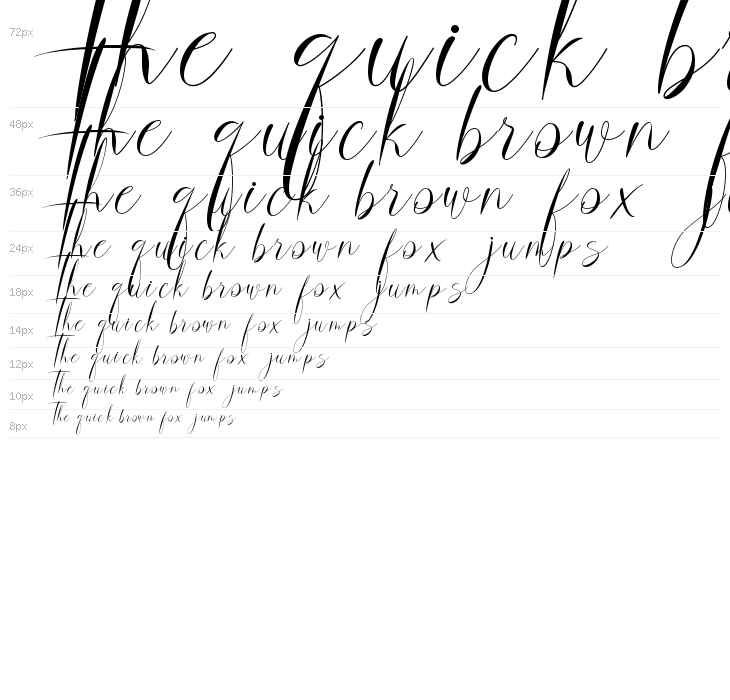 72px the quick br
48px the quick brown f
36px the quick brown fox j
24px The quick brown fox jumps
18px The quick brown fox jumps
14px The quick brown fox jumps
12px The quick brown fox jumps
10px The quick brown fox jumps
8px The quick brown fox jumps